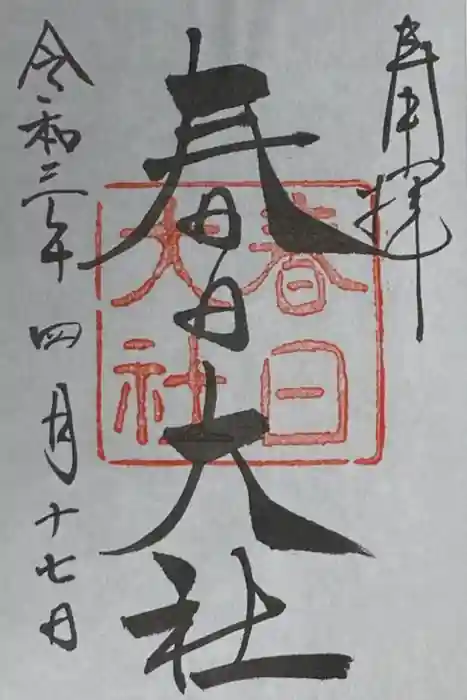 奉拝
春日大社
春日
大社
令和三年四月十七日